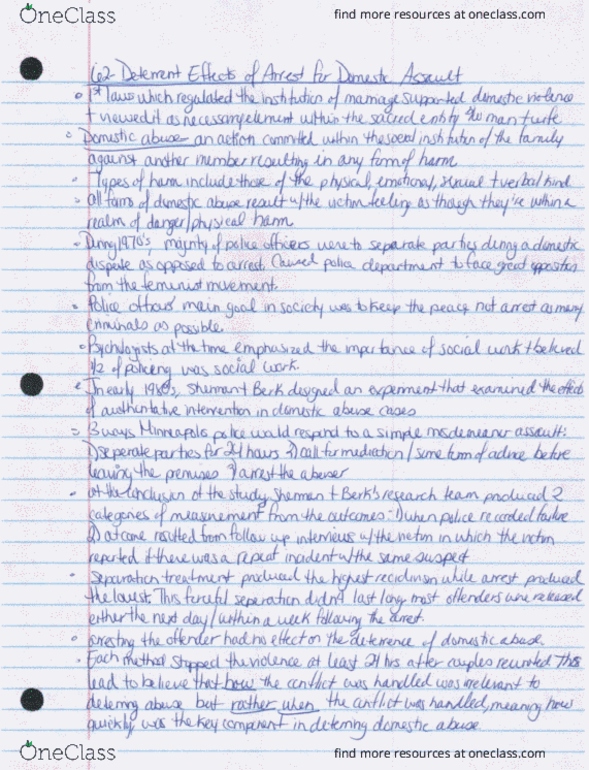 OneClass find more resources at oneclass.com
6.2- Deterrent Effects of Arrest for Domestic Assault
1st laws which regulated the institution of marriage supported domestic violence
+ viewed it as necessary element within the sacred entity the man + wife
Domestic abuse- an action committed within the social institution of the family
against another member resulting in any form of harm
Types of harm include those of the physical, emotional, sexual + verbal kind
all forms of domestic abuse result w/ the victim feeling as though they're within a
realm of danger/physical harm
During 1970's, majority of police officers were to separate parties during a domestic
dispute as opposed to arrest. Caused police department to face great opposition
from the feminist movement.
Police officers' main goal in society was to keep the peace not arrest as many
criminals as possible.
Psychologists at the time emphasized the importance of social work + believed
1/2 of policing was social work.
In early 1980s, Sherman + Berk designed an experiment that examined the effects
of authoritative intervention in domestic abuse cases
3 ways Minneapolis police would respond to a simple misdemeanor assault:
1) seperate parties for 24 hours 2) call for mediation / some form of advice before
leaving the premises 3) arrest the abuser
at the conclusion of the study, Sherman + Berk's research team produced 2
categories of measurement from the outcomes:- 1) when police recorded failure
2) outcome resulted from follow up interviews w/ the victim in which the victim
reported if there was a repeat incident w/ the same suspect
Separation treatment produced the highest recidivism while arrest produced
the lowest. This forceful seperation didn't last long, most offenders were released
either the next day / within a week following the arrest.
arresting the offender had his effect on the deterrence of domestic abuse.
Each method stopped the violence at least 24 hrs after couples reunited. This
lead to believe that how the conflict was handled was irrelevant to
deterring abuse but rather when the conflict was handled, meaning how
quickly, was the key component in deterring domestic abuse.
OneClass find more resources at oneclass.com